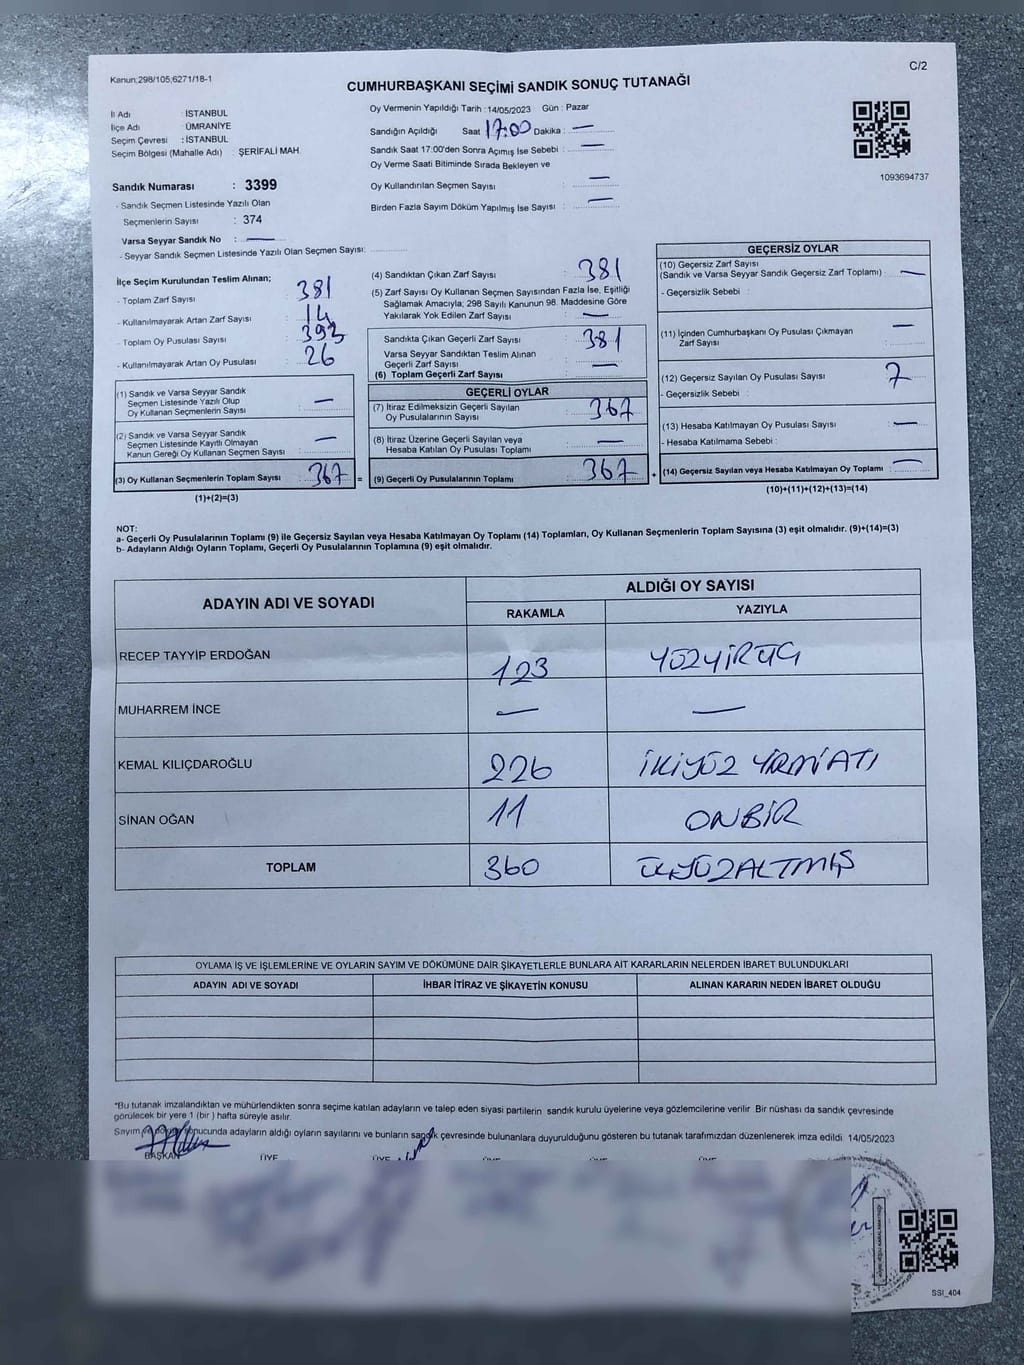 Kanun;298/105;6271/18-1
C/2
CUMHURBAŞKANI SEÇİMİ SANDIK SONUÇ TUTANAĞI
İl Adı : İSTANBUL
İlçe Adı : ÜMRANİYE
Seçim Çevresi : İSTANBUL
Seçim Bölgesi (Mahalle Adı) : ŞERİFALİ MAH.
Sandık Numarası : 3399
- Sandık Seçmen Listesinde Yazılı Olan
Seçmenlerin Sayısı : 374
Varsa Seyyar Sandık No : —
- Seyyar Sandık Seçmen Listesinde Yazılı Olan Seçmen Sayısı:
Oy Vermenin Yapıldığı Tarih : 14/05/2023 Gün : Pazar
Sandığın Açıldığı Saat 17:00 Dakika : —
Sandık Saat 17:00'den Sonra Açımış İse Sebebi : —
Oy Verme Saati Bitiminde Sırada Bekleyen ve
Oy Kullandırılan Seçmen Sayısı : —
Birden Fazla Sayım Döküm Yapılmış İse Sayısı : —
1093694737
İlçe Seçim Kurulundan Teslim Alınan;
- Toplam Zarf Sayısı : 381
- Kullanılmayarak Artan Zarf Sayısı : 14
- Toplam Oy Pusulası Sayısı : 393
- Kullanılmayarak Artan Oy Pusulası : 26
(1) Sandık ve Varsa Seyyar Sandık
Seçmen Listesinde Yazılı Olup
Oy Kullanan Seçmenlerin Sayısı : —
(2) Sandık ve Varsa Seyyar Sandık
Seçmen Listesinde Kayıtlı Olmayan
Kanun Gereği Oy Kullanan Seçmen Sayısı : —
(3) Oy Kullanan Seçmenlerin Toplam Sayısı : 367 =
(1)+(2)=(3)
(4) Sandıktan Çıkan Zarf Sayısı : 381
(5) Zarf Sayısı Oy Kullanan Seçmen Sayısından Fazla İse, Eşitliği
Sağlamak Amacıyla; 298 Sayılı Kanunun 98. Maddesine Göre
Yakılarak Yok Edilen Zarf Sayısı : —
Sandıkta Çıkan Geçerli Zarf Sayısı : 381
Varsa Seyyar Sandıktan Teslim Alınan
Geçerli Zarf Sayısı : —
(6) Toplam Geçerli Zarf Sayısı
GEÇERLİ OYLAR
(7) İtiraz Edilmeksizin Geçerli Sayılan
Oy Pusulalarının Sayısı : 367
(8) İtiraz Üzerine Geçerli Sayılan veya
Hesaba Katılan Oy Pusulası Toplamı : —
(9) Geçerli Oy Pusulalarının Toplamı : 367 +
GEÇERSİZ OYLAR
(10) Geçersiz Zarf Sayısı
(Sandık ve Varsa Seyyar Sandık Geçersiz Zarf Toplamı) : —
- Geçersizlik Sebebi :
(11) İçinden Cumhurbaşkanı Oy Pusulası Çıkmayan
Zarf Sayısı : —
(12) Geçersiz Sayılan Oy Pusulası Sayısı : 7
- Geçersizlik Sebebi :
(13) Hesaba Katılmayan Oy Pusulası Sayısı : —
- Hesaba Katılmama Sebebi :
(14) Geçersiz Sayılan veya Hesaba Katılmayan Oy Toplamı : —
(10)+(11)+(12)+(13)=(14)
NOT:
a- Geçerli Oy Pusulalarının Toplamı (9) ile Geçersiz Sayılan veya Hesaba Katılmayan Oy Toplamı (14) Toplamları, Oy Kullanan Seçmenlerin Toplam Sayısına (3) eşit olmalıdır. (9)+(14)=(3)
b- Adayların Aldığı Oyların Toplamı, Geçerli Oy Pusulalarının Toplamına (9) eşit olmalıdır.
ADAYIN ADI VE SOYADI
ALDIĞI OY SAYISI
RAKAMLA YAZIYLA
RECEP TAYYİP ERDOĞAN 123 YÜZYİRÜÇ
MUHARREM İNCE — —
KEMAL KILIÇDAROĞLU 226 İKİYÜZ YİRMİATI
SİNAN OĞAN 11 ONBİR
TOPLAM 360 ÜÇYÜZALTMIŞ
OYLAMA İŞ VE İŞLEMLERİNE VE OYLARIN SAYIM VE DÖKÜMÜNE DAİR ŞİKAYETLERLE BUNLARA AİT KARARLARIN NELERDEN İBARET BULUNDUKLARI
ADAYIN ADI VE SOYADI İHBAR İTİRAZ VE ŞİKAYETİN KONUSU ALINAN KARARIN NEDEN İBARET OLDUĞU
*Bu tutanak imzalandıktan ve mühürlendikten sonra seçime katılan adayların ve talep eden siyasi partilerin sandık kurulu üyelerine veya gözlemcilerine verilir .Bir nüshası da sandık çevresinde
görülecek bir yere 1 (bir ) hafta süreyle asılır.
Sayım ve döküm sonucunda adayların aldığı oyların sayılarını ve bunların sandık çevresinde bulunanlara duyurulduğunu gösteren bu tutanak tarafımızdan düzenlenerek imza edildi 14/05/2023
BAŞKAN ÜYE ÜYE ÜYE ÜYE ÜYE
SSI_404